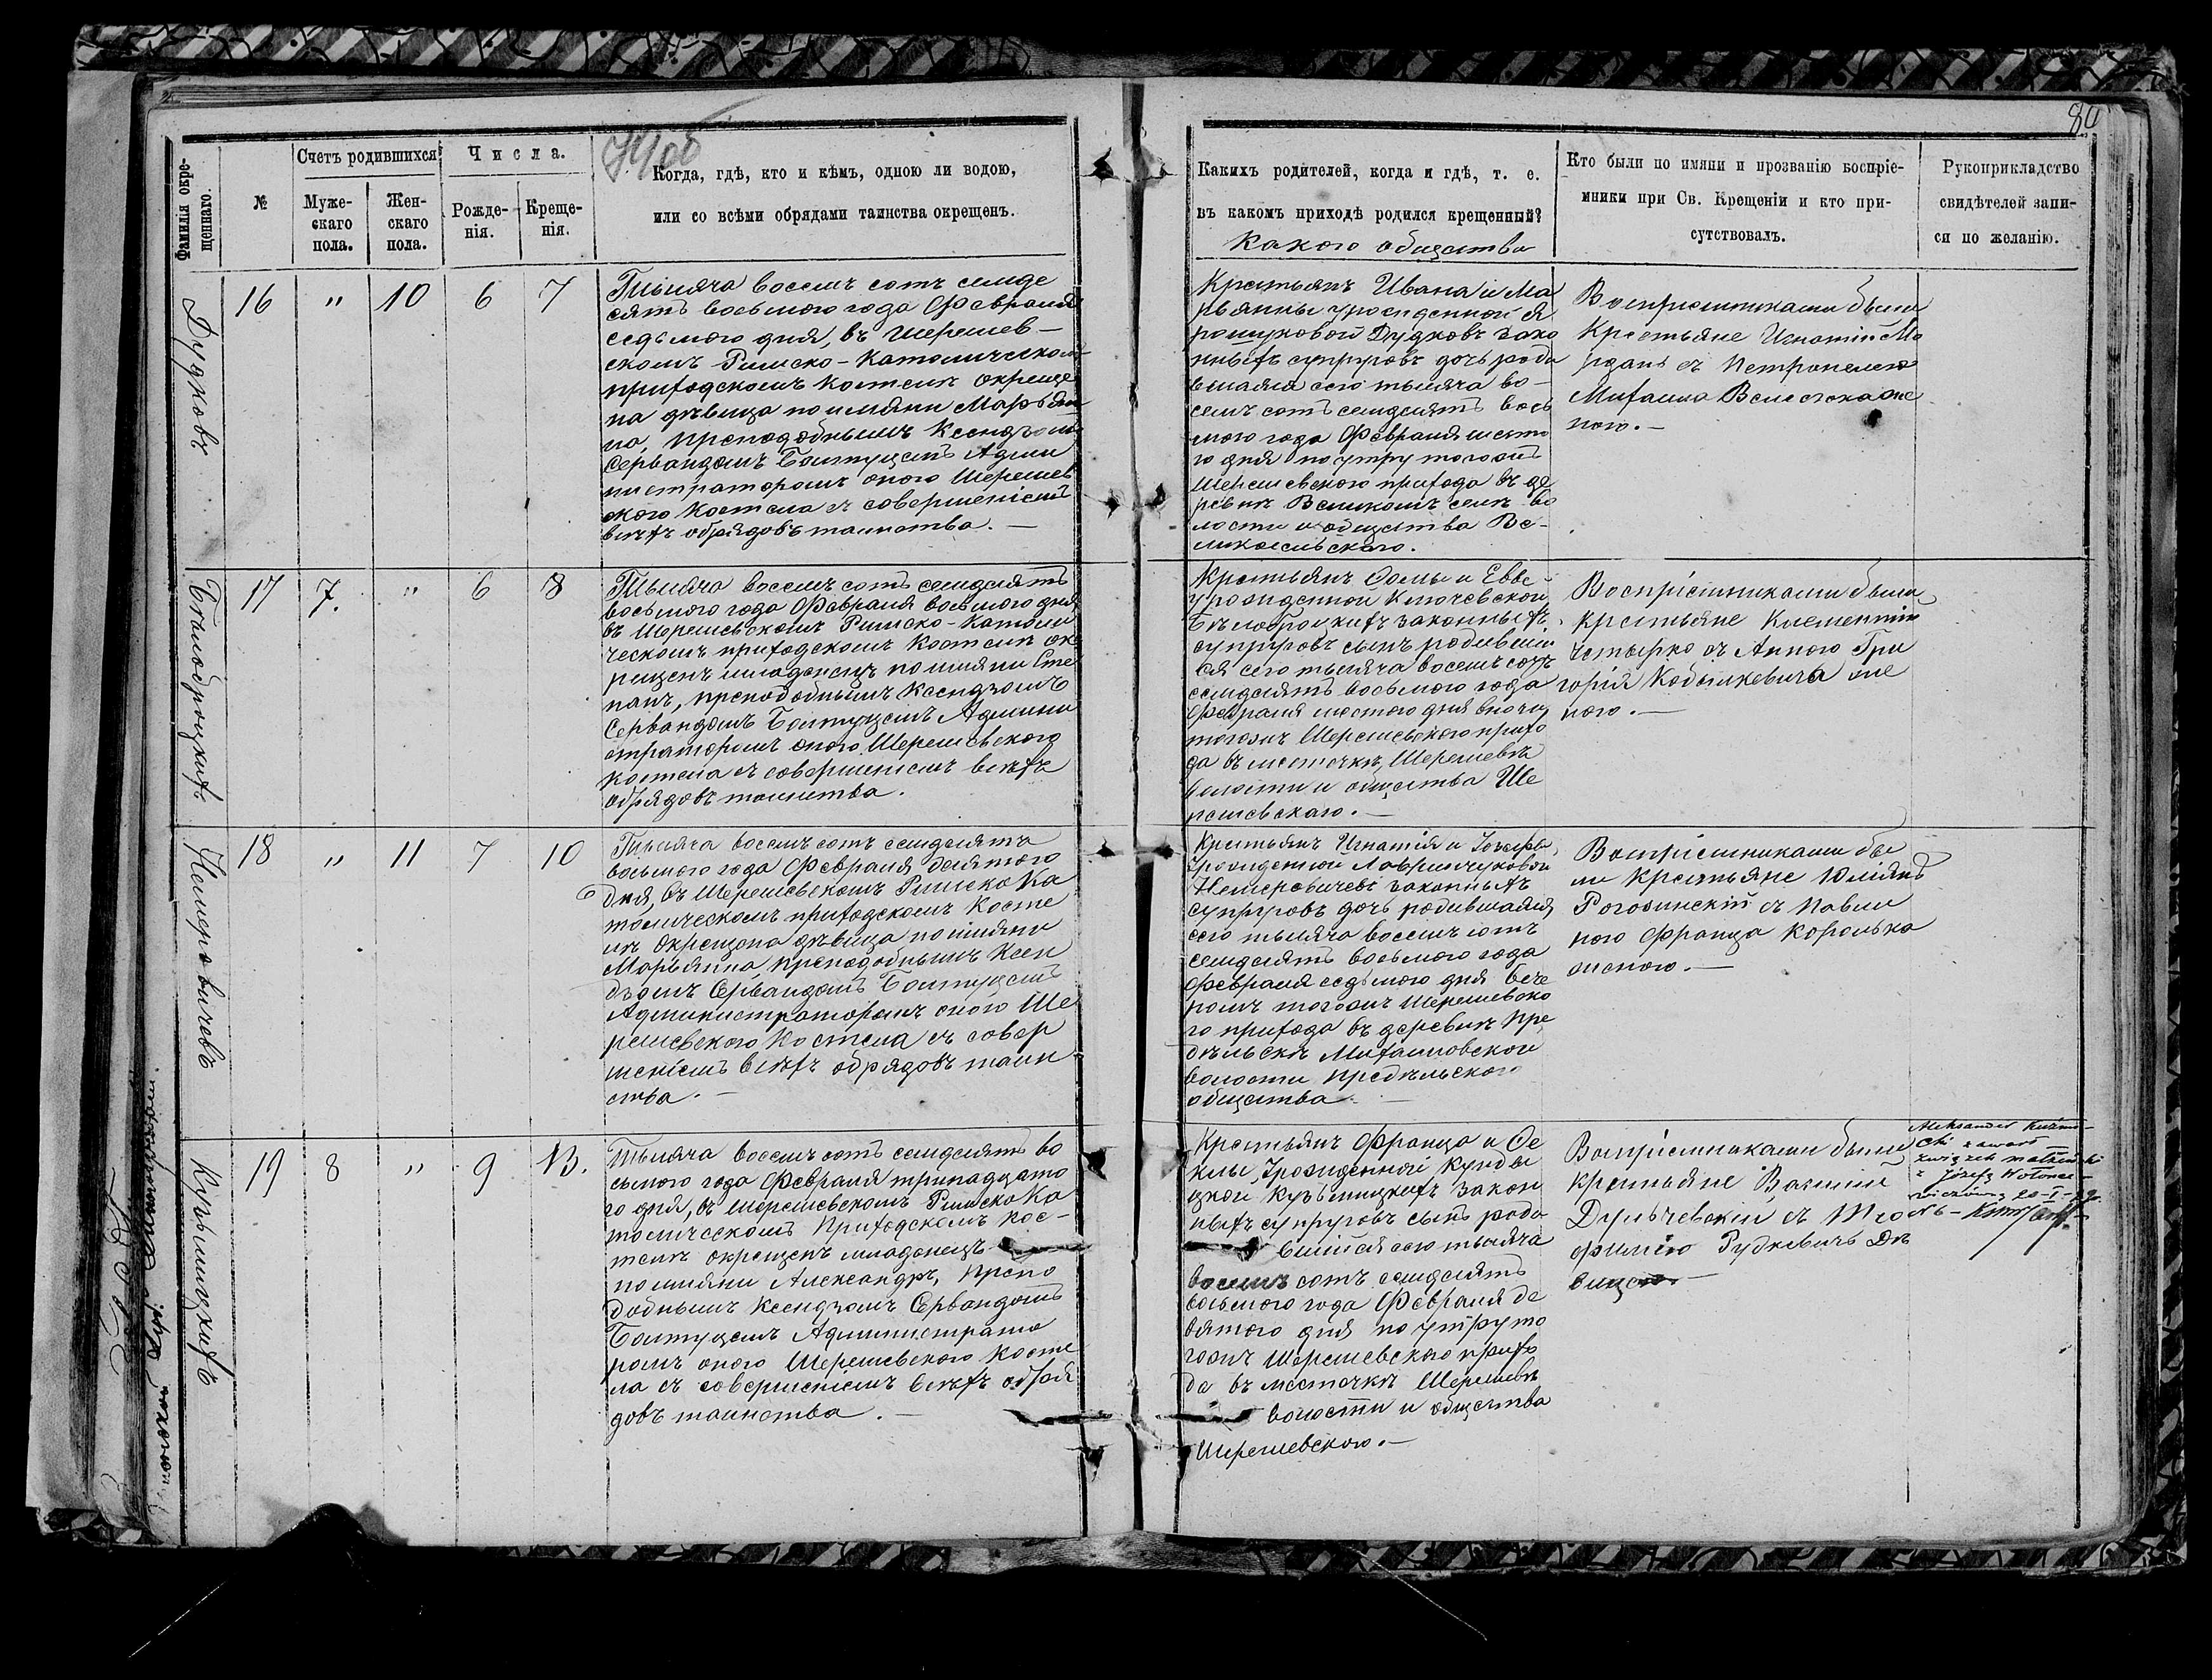 84
Фамилія окре-
щеннаго.
№
Счетъ родившихся
Муже-
скаго
пола.
Жен-
скаго
пола.
Числа.
Рожде-
нія.
Креще-
нія.
Когда, гдѣ, кто и кѣмъ, одною ли водою,
или со всѣми обрядами таинства окрещенъ.
Какихъ родителей, когда и гдѣ, т. е.
въ какомъ приходѣ родился крещенный?
Какого общества
Кто были по имяни и прозванію воспріе-
мники при Св. Крещеніи и кто при-
сутствовалъ.
Рукоприкладство
свидѣтелей запи-
си по желанію.
Дудковъ
16 " 10 6 7
Тысяча восемъ сотъ семьде
сятъ восьмого года Февраля
седьмого дня, въ Шерешев-
скомъ Римско-Католическомъ
приходскомъ Костелѣ окреще
на дѣвица по имяни Марьян
на, преподобнымъ Ксендзомъ
Сервандомъ Болтуцемъ Адми
нистраторомъ оного Шерешев
ского Костела съ совершеніемъ
всѣхъ обрядовъ таинства. —
Крестьянъ Ивана и Ма
рьянны урожденной Я
рошуковой Дудковъ зако
нныхъ супруговъ дочь роди
вшаяся сего тысяча во-
семъ сотъ семдсятъ вось
мого года Февраля шесто
го дня по утру тогожъ
Шерешевского прихода въ де
ревнѣ Великомъ селѣ во
лости и общества Ве-
ликосельского.
Воспріемниками были
Крестьяне Игнатій Мо
рданъ съ Петронелею
Михаила Велесока же
ною. —
Бѣлобродскихъ
17 7. " 6 8
Тысяча восемъ сотъ семдсятъ
восьмого года Февраля восьмого дня
въ Шерешевскомъ Римско-Католи
ческомъ приходскомъ Костелѣ ок
рещенъ младенецъ по имяни Сте
панъ, преподобнымъ Ксендзомъ
Сервандомъ Болтуцемъ Админи
страторомъ оного Шерешевского
костела съ совершеніемъ всѣхъ
обрядовъ таинства.
Крестьянъ Фомы и Еввы
урожденной Ключевской
Бѣлобродскихъ законныхъ
супруговъ сынъ родившій
ся сего тысяча восемъ сотъ
семдсятъ восьмого года
Февраля шестого дня вночи
тогожъ Шерешевского прихо
да въ мѣстечкѣ Шерешевѣ
волости и общества Ше
решевскаго. —
Воспріемниками были
крестьяне Климентій
Четырко съ Анною Гри
горія Кобылкевича же
ною. —
Немеровичевъ
18 " 11 7 10
Тысяча восемъ сотъ семдсятъ
восьмого года Февраля десятого
дня, въ Шерешевскомъ Римско Ка
толическомъ приходскомъ Косте
лѣ окрещена дѣвица по имяни
Марьянна, преподобнымъ Ксен
дзомъ Сервандомъ Болтуцемъ
Администраторомъ оного Ше
решевского Костела съ совер
шеніемъ всѣхъ обрядовъ таин
ства. —
Крестьянъ Игнатія и Іозефы,
Урожденной Лавринчуковой
Немеровичевъ законныхъ
супруговъ дочь родившаяся
сего тысяча восемъ сотъ
семдсятъ восьмого года
Февраля седьмого дня вече
ромъ тогожъ Шерешевско
го прихода въ деревнѣ Пре
дѣльскѣ Михайловской
волости Предѣльского
общества. —
Воспріемниками бы
ли крестьяне Юліянъ
Рогозинскій съ Павли
ною Франца Королька
женою. —
Кузьмицкихъ
19 8 " 9 13.
Тысяча восемъ сотъ семдсятъ во
сьмого года Февраля тринадцато
го дня, въ Шерешевскомъ Римско Ка
толическомъ Приходскомъ Кос-
телѣ окрещенъ младенецъ
по имяни Александръ, Препо
добнымъ Ксендзомъ Сервандомъ
Болтуцемъ Администрато
ромъ оного Шерешевского Косте
ла съ совершеніемъ всѣхъ обря
довъ таинства. —
Крестьянъ Франца и Фе
клы, Урожденной Кунды
цкой Кузьмицкихъ закон
ныхъ супруговъ сынъ роди
вшійся сего тысяча
восемъ сотъ семдсятъ
восьмого года Февраля де
вятого дня по утру то
гожъ Шерешевского прихо
да въ мѣстечкѣ Шерешевѣ
волости и общества
Шерешевского. —
Воспріемниками были
крестьяне Василій
Дульчевскій съ Тео
филіею Рудкевичъ Дѣ
вицею. —
Aleksander Kuźmi-
cki zawarł
związek małżeński
z Józefą
20-I-